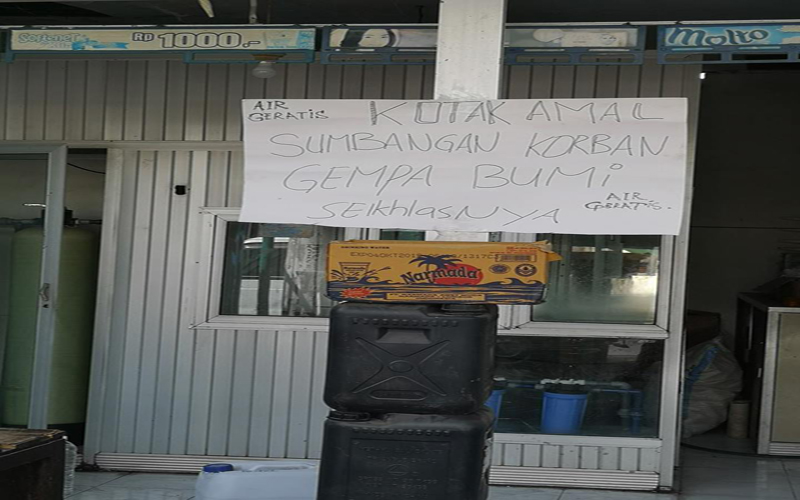 Softener
RP 1000,-
Molto
AIR
GERATIS
KOTAK AMAL
SUMBANGAN KORBAN
GEMPA BUMI
SEIKHLASNYA
AIR
GERATIS.
Narmada